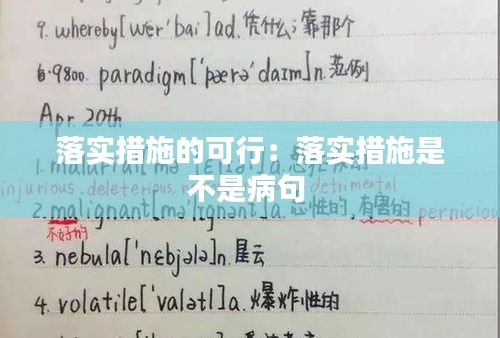 9. whereby[weər'bai]ad.凭什么;靠那个
6.9800. paradigm['pærə'daɪm]n.范例
Apr 20th
落实措施的可行：落实措施是
不是病句
injurious.deleterious.
detrimental
2.malignant[mə'lɪgnənt]a.恶性的,有害的 pernicio
不好的
3. nebula['nɛbjələ]n.星云
4. volatile['valətl]a.爆炸性的